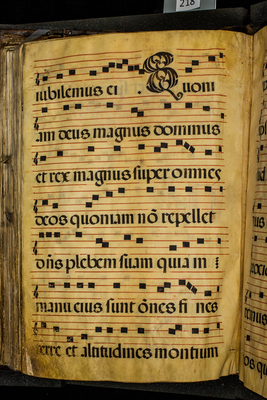 218
iubilemus ei . Quoni
am deus magnus dominus
et rex magnus super omnes
deos quoniam nõ repellet
oñs plebem suam quia in
manu eius sunt õnes fi nes
terre et altitudines montium